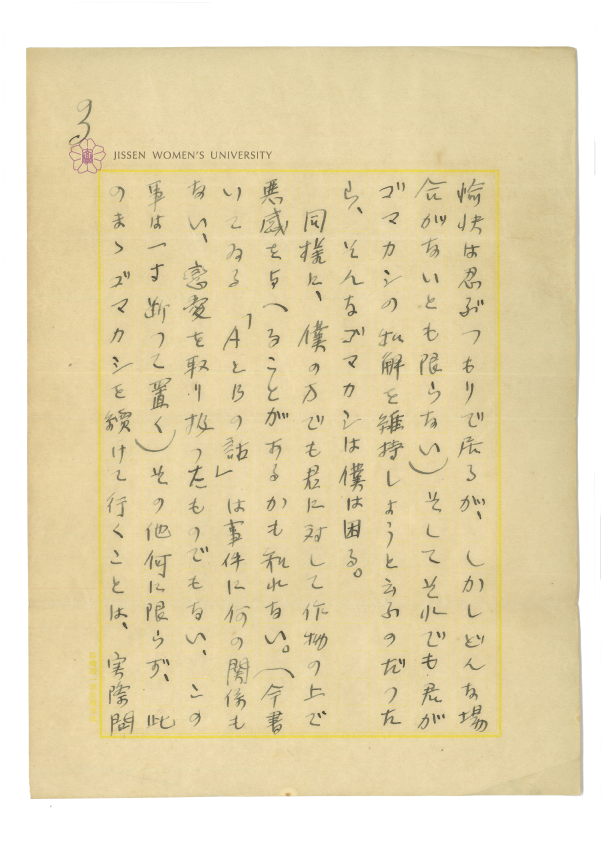 3
JISSEN WOMEN'S UNIVERSITY
愉快は忍ぶつもりで居るが、しかしどんな場
合がないとも限らない）そしてそれでも君が
ゴマカシの和解を維持しようと云ふのだつた
ら、そんなゴマカシは僕は困る。
同様に、僕の方でも君に対して作物の上で
悪感を与へることがあるかも知れない。（今書
いてゐる「AとBの話」は事件に何の関係も
ない、恋愛を取り扱つたものでもない、この
事は一寸断つて置く）その他何に限らず、此
のまゝゴマカシを続けて行くことは、実際問